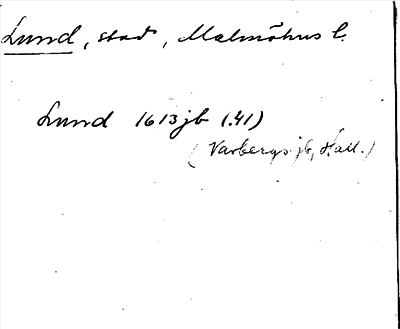 Lund, stad, Malmöhus l.
Lund 1613 jb (.41)
(Varbergs jb, Hall.)